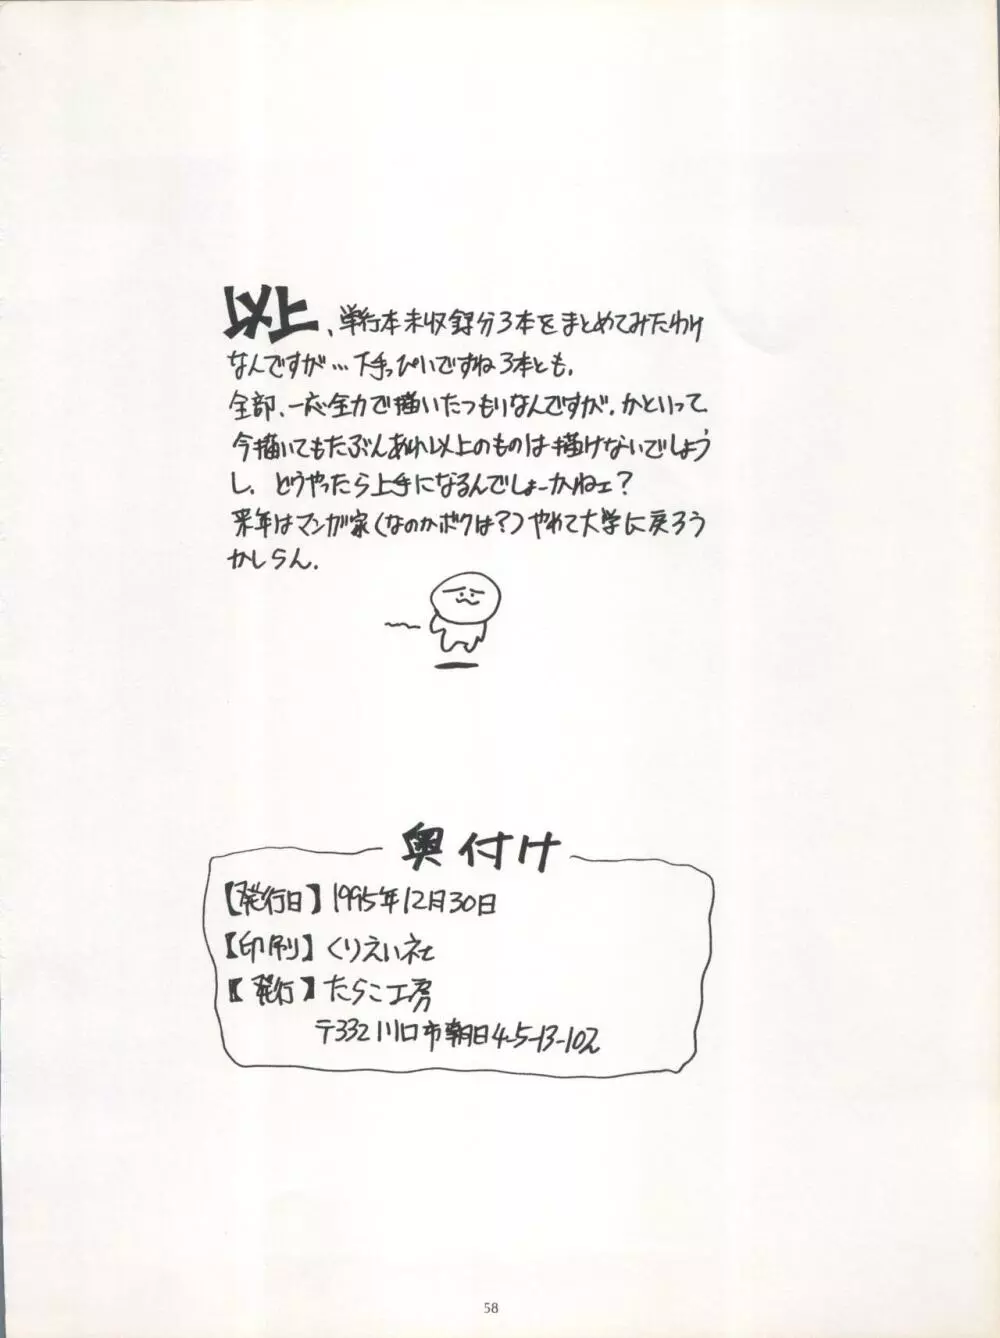 以上、単行本未収録分3本をまとめてみたわけ
なんですが…下手っぴいですね3本とも。
全部、一応全力で描いたつもりなんですが。かといって
今描いてもたぶんあれ以上のものは描けないでしょう
し。どうやったら上手になるんでしょーかねェ?
来年はマンガ家(なのかボクは?)やめて大学に戻ろう
かしらん。
奥付け
【発行日】1995年12月30日
【印刷】くりえい社
【発行】たらこ工房
〒332 川口市朝日4-5-13-102
58